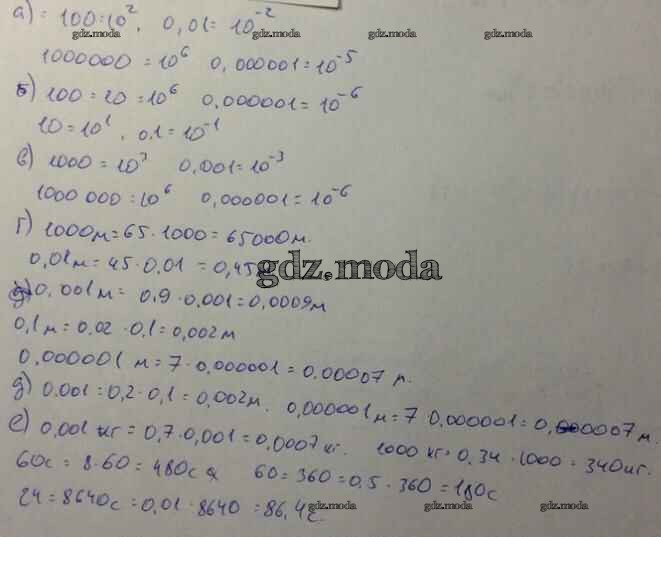 а) = 100=10², 0,01=10⁻²
gdz.moda gdz.moda gdz.moda
1000000 = 10⁶ 0,000001=10⁻⁵
б) 100=10=10⁶ 0,000001=10⁻⁶
10=10¹, 0,1=10⁻¹
в) 1000=10³ 0,001=10⁻³
1000 000=10⁶ 0,000001=10⁻⁶
г) 1000м=65·1000=65000м.
0,01м=45·0,01=0,45
gdz.moda
0,001м= 0,9·0,001=0,0009м
0,1м=0,02·0,1=0,002м
0,000001 м=7·0,000001=0.00007 м.
д) 0,001=0,2·0,1=0,002м. 0,000001м=7·0,000001=0,000007м.
е) 0,001 кг=0,7·0,001=0,0007кг. 1000 кг=0,34·1000=340кг.
60с=8·60=480с 60=360=0,5·360=180с
24=8640с=0,01·8640=86,4с.
gdz.moda gdz.moda gdz.moda